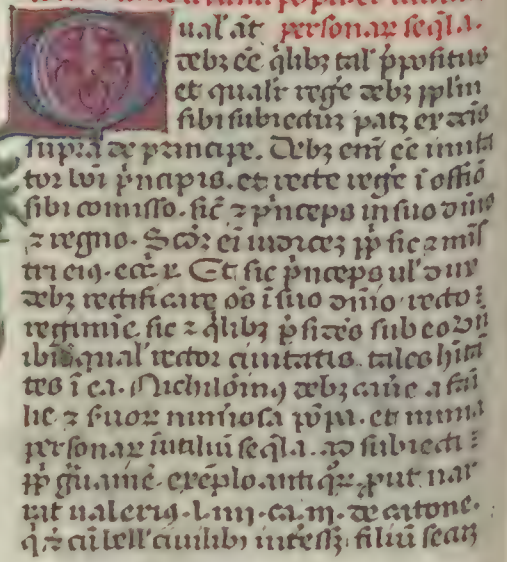 ualr̃ at̃ personar̃ seq̃la.
Q debꝫ eẽ q̃libꝫ tal' p̃positus
et qualr̃ rege debꝫ pplm̃
sibi subiectus patꝫ ex dc̃is
supra de principe. Debꝫ eni eẽ imita
tor boi p̃ncipis. et recte rege ĩ offio
sibi comisso. sic̃ ⁊ p̃nceps in suo dnio
⁊ regno. Scdꝫ ei iudicẽ ppl̃i sic ⁊ mis̃
tri eiꝯ. ecc̃ x. Et sic p̃nceps ul' dux
debꝫ rectificare oẽs ĩ suo dnio recto
regimĩe. sic ⁊ q̃libꝫ p̃sidẽs sub eo
ibi. qual' rector ciuitatis. tales hĩta
tes ĩ ea. Nichilominꝯ debꝫ cauẽ a fãi
lie ⁊ suoꝝ numosa põpa. et nimia
personaꝝ ĩutiliũ seq̃la. ad subiecti
pp̃ grauamẽ. exẽplo antiqꝝ. prout nar
rat ualerius. l. iiii. ca. iii. de catone.
q̃ ⁊ cũ bell' ciuilibꝫ interessꝫ. filiũ secꝫ